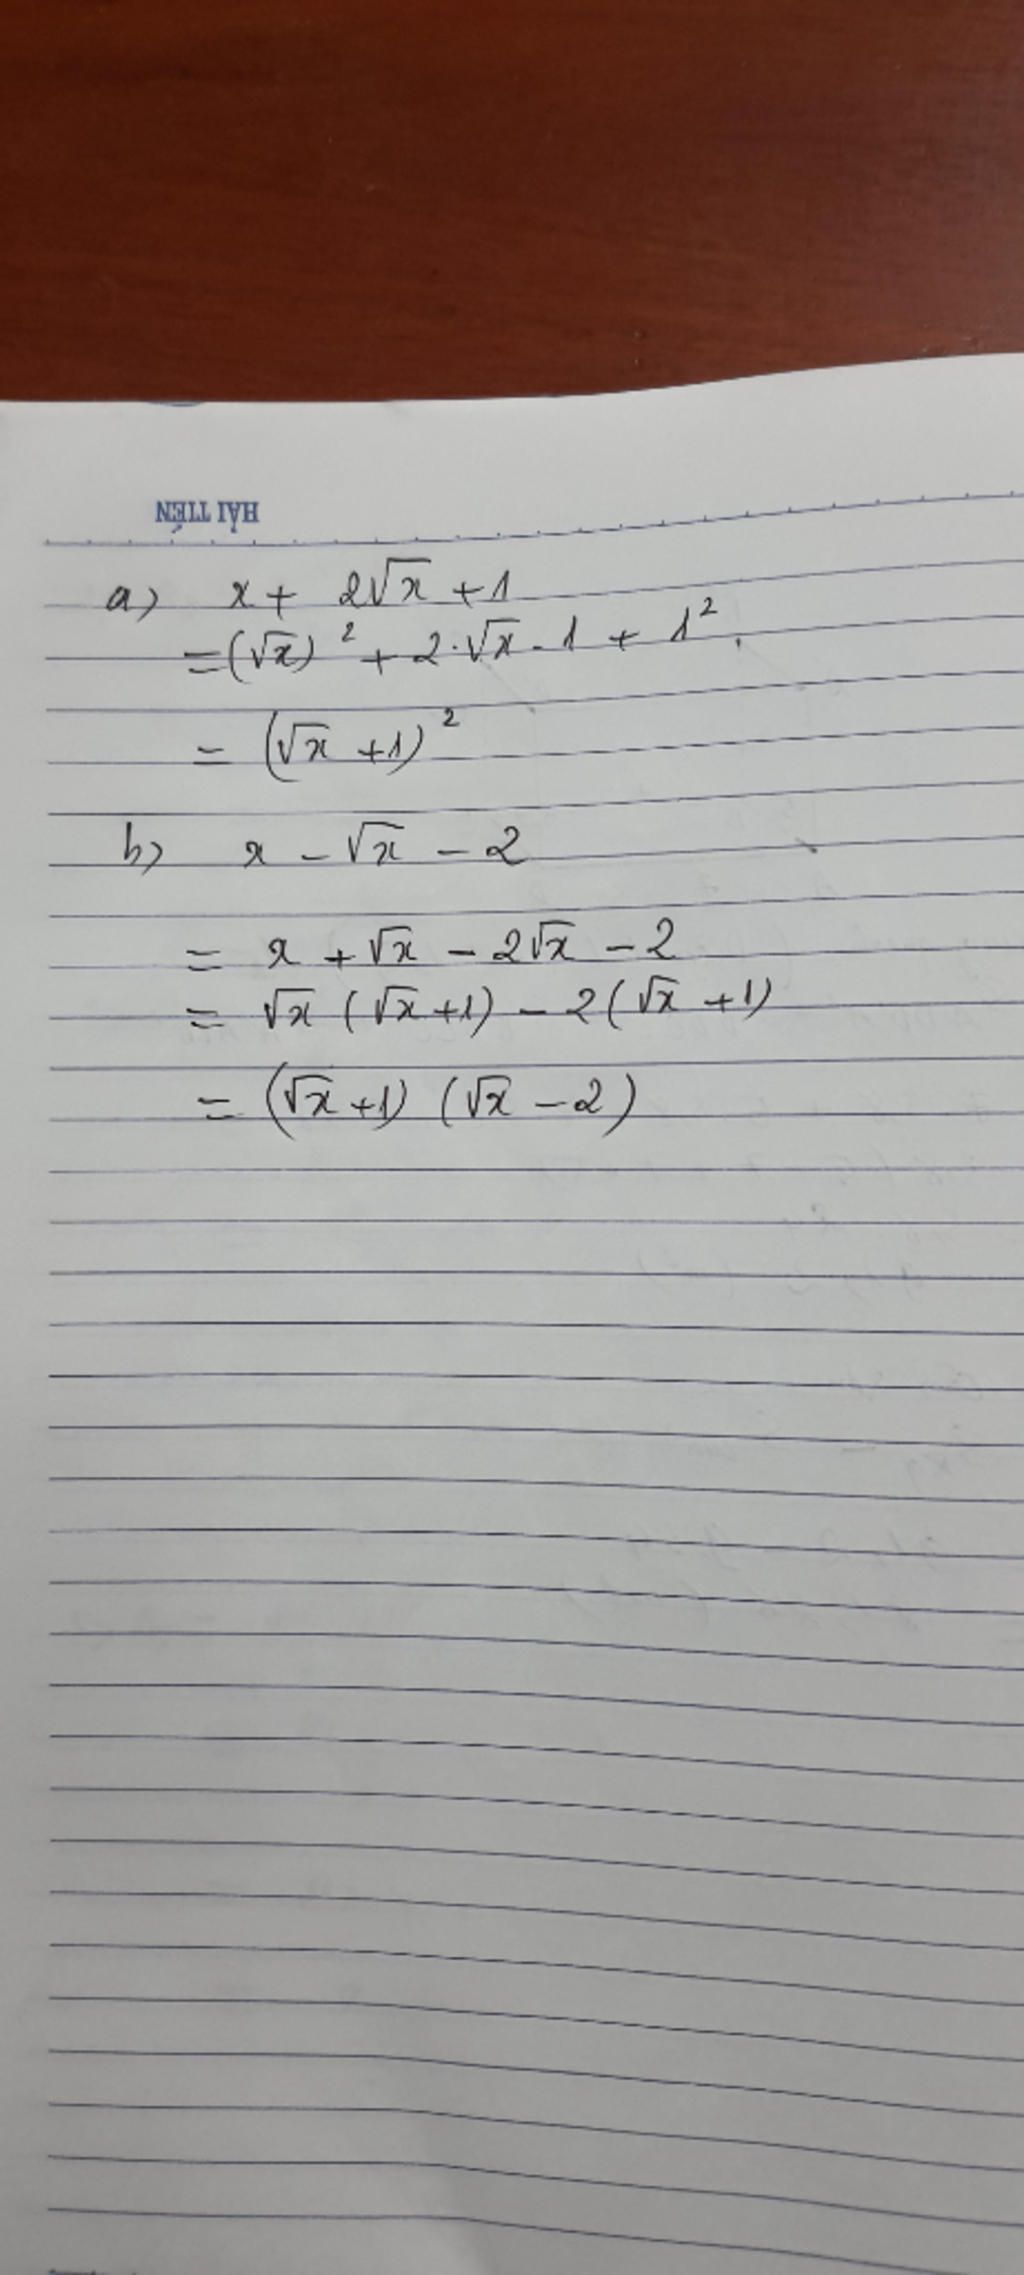 HẢI TIẾN
a) x + 2√x + 1
= (√x)² + 2·√x - 1 + 1².
= (√x + 1)²
b) x - √x - 2
= x + √x - 2√x - 2
= √x (√x + 1) - 2(√x + 1)
= (√x + 1) (√x - 2)